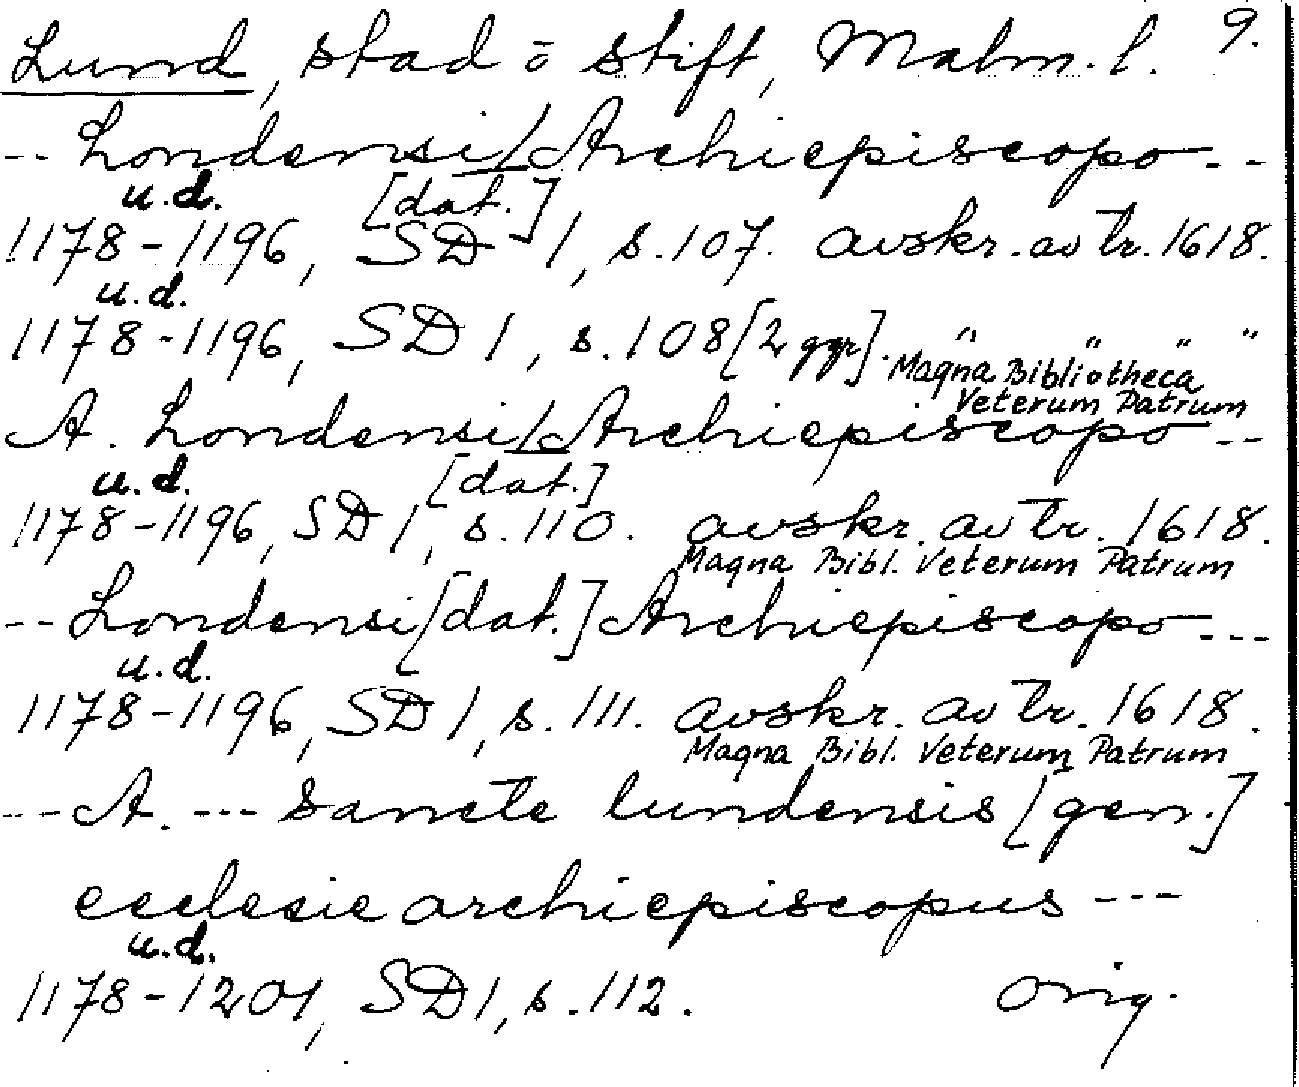 Lund, stad o stift, Malm. l. 9.
-- Londensi/Archiepiscopo --
u.d. [dat.]
1178-1196, SD 1, s.107. avskr. av tr. 1618.
u.d.
1178-1196, SD 1, s.108 [2 ggr]. " " " "
Magna Bibliotheca
Veterum Patrum
A. Londensi/Archiepiscopo --
u.d. [dat.]
1178-1196, SD 1, s.110. avskr. av tr. 1618.
Magna Bibl. Veterum Patrum
-- Londensi [dat.] Archiepiscopo ---
u.d.
1178-1196, SD 1, s.111. avskr. av tr. 1618.
Magna Bibl. Veterum Patrum
--- A. --- sancte lundensis [gen.]
ecclesie archiepiscopus ---
u.d.
1178-1201, SD 1, s.112. orig.